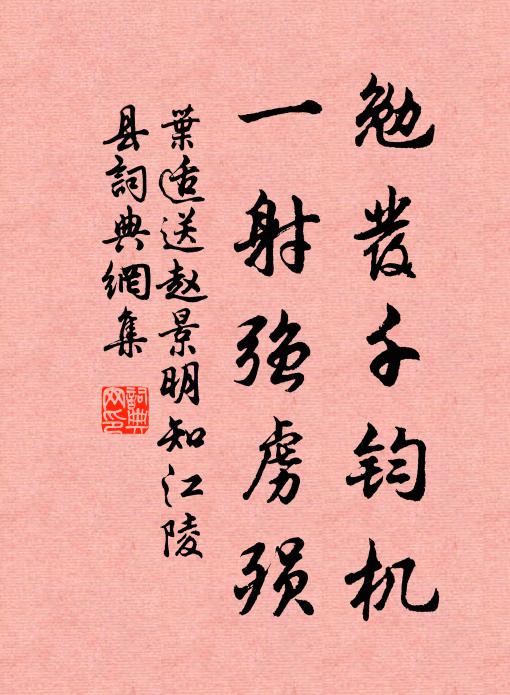 勉发千钧机
一射强虏殒
葉适送赵景明知江陵
县詞典網集
詞典
网印